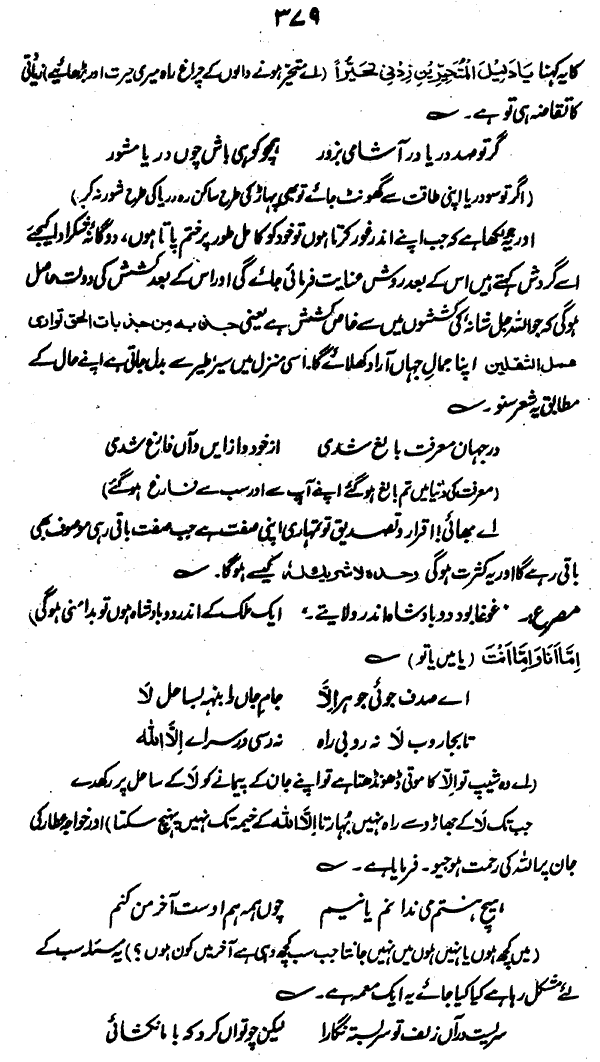 ۳۷۹
کا یہ کہنا یَا دَلِیْلَ الْمُتَحَیِّرِیْنِ زِدْنِیْ تَحَیُّراً (اے متحیر ہونے والوں کے چراغ راہ میری حیرت اور بڑھائیے) زیادتی
کا تقاضہ ہی تو ہے۔
گر تو صد دریا در آشامی بزور ہمچو کوہی باش چوں دریا مشور
(اگر تو سو دریا اپنی طاقت سے گھونٹ جائے تو بھی پہاڑ کی طرح ساکن رہ دریا کی طرح شور نہ کر)
اور جو لکھا ہے کہ جب اپنے اندر غور کرتا ہوں تو خود کو کامل طور پر ختم پاتا ہوں، دوگانۂ شکر ادا کیجئے
اسے گردش کہتے ہیں اس کے بعد روشنی عنایت فرمائی جائے گی اور اس کے بعد کشش کی دولت حاصل
ہوگی کہ جو اللہ جل شانہ کی کششوں میں سے خاص کشش ہے یعنی جذبۃ من جذبات الحق توازی
عمل الثقلین اپنا جمال جہاں آرا دکھلائے گا۔ اسی منزل میں سیر طیر سے بدل جاتی ہے اپنے حال کے
مطابق یہ شعر سنو۔
در جہان معرفت بالغ شدی از خود و از ایں و آں فارغ شدی
(معرفت کی دنیا میں تم بالغ ہوگئے اپنے آپ سے اور سب سے فارغ ہوگئے)
اے بھائی! اقرار و تصدیق تو تمہاری اپنی صفت ہے جب صفت باقی رہی موصوف بھی
باقی رہے گا اور یہ کثرت ہوگی وحدہ لا شریک لہٗ کیسے ہوگا۔
مصرع:۔ "غوغا بود دو بادشاہ اندر ولایتے۔" ایک ملک کے اندر دو بادشاہ ہوں تو بدامنی ہوگی)
اِمَّا اَنَا وَاِمَّا اَنْتَ (یا میں یا تو)
اے صدف جوئی جوہر اِلَّا جام جاں را بنہ بساحل لَا
تا بجاروب لَا نہ روبی راہ نہ رسی در سرائے اِلَّا اللّٰہ
(اے وہ شیپ تو اِلّا کا موتی ڈھونڈھتا ہے تو اپنے جان کے پیمانے کو لَا کے ساحل پر رکھدے
جب تک لَا کے جھاڑو سے راہ نہیں بُہارتا اِلَّا اللّٰہ کے خیمہ تک نہیں پہنچ سکتا) اور خواجہ عطار کی
جان پر اللہ کی رحمت ہوجیو۔ فرمایا ہے۔
ہیچ ہستم می ندانم یا نیم چوں ہمہ ہم اوست آخر من کنم
(میں کچھ ہوں یا نہیں ہوں میں نہیں جانتا جب سب کچھ وہی ہے آخر میں کون ہوں؟) یہ مسئلہ سب کے
لئے مشکل رہا ہے کیا کیا جائے یہ ایک معمہ ہے۔
سریت در آں زلف تو سربستہ نگارا لیکن چو تواں کرد کہ با ما نکشائی